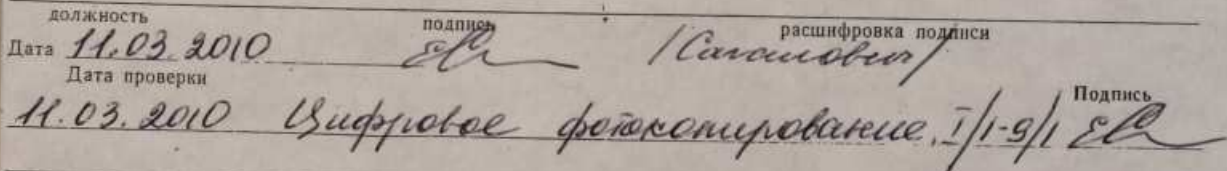 должность подпись расшифровка подписи
Дата 11.03.2010 /Сагалович/
Дата проверки Подпись
11.03.2010 Цифровое фотокопирование. I/1-9/1